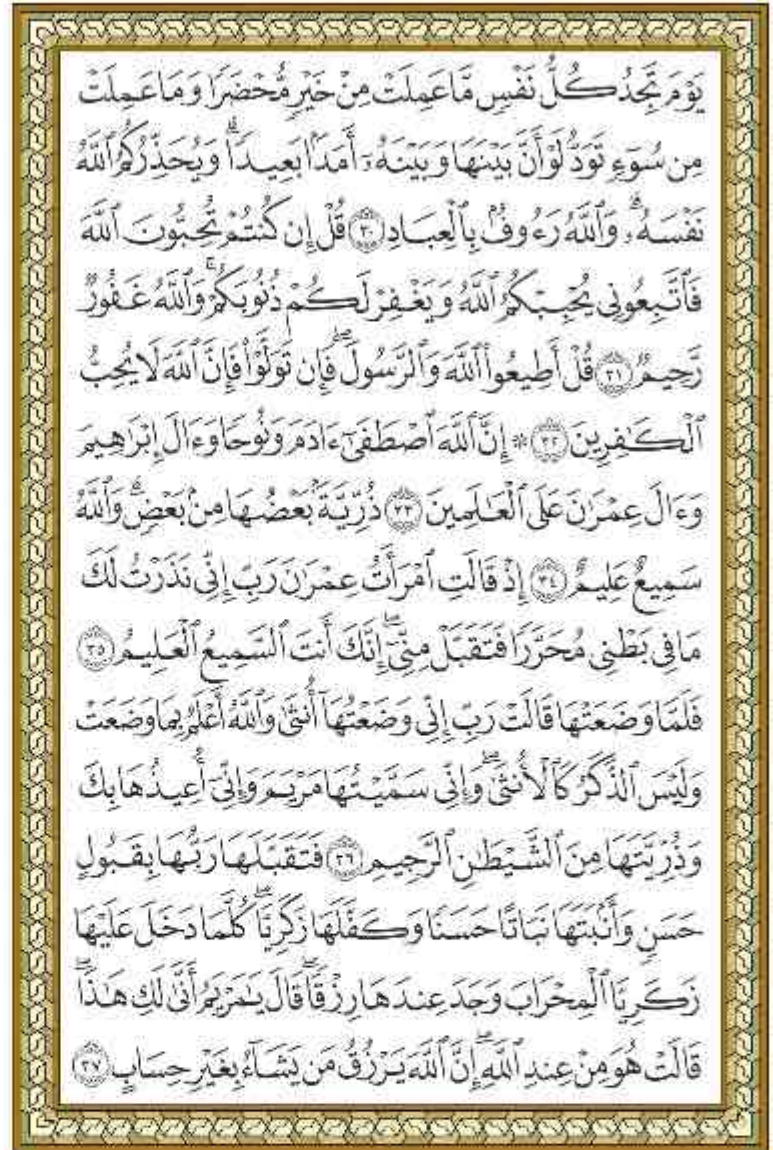 يَوْمَ تَجِدُ كُلُّ نَفْسٍ مَّا عَمِلَتْ مِنْ خَيْرٍ مُّحْضَرًا وَمَا عَمِلَتْ
مِن سُوٓءٍ تَوَدُّ لَوْ أَنَّ بَيْنَهَا وَبَيْنَهُۥٓ أَمَدًۢا بَعِيدًا ۗ وَيُحَذِّرُكُمُ ٱللَّهُ
نَفْسَهُۥ ۗ وَٱللَّهُ رَءُوفٌۢ بِٱلْعِبَادِ ٣٠ قُلْ إِن كُنتُمْ تُحِبُّونَ ٱللَّهَ
فَٱتَّبِعُونِى يُحْبِبْكُمُ ٱللَّهُ وَيَغْفِرْ لَكُمْ ذُنُوبَكُمْ ۗ وَٱللَّهُ غَفُورٌ
رَّحِيمٌ ٣١ قُلْ أَطِيعُوا۟ ٱللَّهَ وَٱلرَّسُولَ ۖ فَإِن تَوَلَّوْا۟ فَإِنَّ ٱللَّهَ لَا يُحِبُّ
ٱلْكَٰفِرِينَ ٣٢ ۞ إِنَّ ٱللَّهَ ٱصْطَفَىٰٓ ءَادَمَ وَنُوحًا وَءَالَ إِبْرَٰهِيمَ
وَءَالَ عِمْرَٰنَ عَلَى ٱلْعَٰلَمِينَ ٣٣ ذُرِّيَّةًۢ بَعْضُهَا مِنۢ بَعْضٍ ۗ وَٱللَّهُ
سَمِيعٌ عَلِيمٌ ٣٤ إِذْ قَالَتِ ٱمْرَأَتُ عِمْرَٰنَ رَبِّ إِنِّى نَذَرْتُ لَكَ
مَا فِى بَطْنِى مُحَرَّرًا فَتَقَبَّلْ مِنِّىٓ ۖ إِنَّكَ أَنتَ ٱلسَّمِيعُ ٱلْعَلِيمُ ٣٥
فَلَمَّا وَضَعَتْهَا قَالَتْ رَبِّ إِنِّى وَضَعْتُهَآ أُنثَىٰ وَٱللَّهُ أَعْلَمُ بِمَا وَضَعَتْ
وَلَيْسَ ٱلذَّكَرُ كَٱلْأُنثَىٰ ۖ وَإِنِّى سَمَّيْتُهَا مَرْيَمَ وَإِنِّىٓ أُعِيذُهَا بِكَ
وَذُرِّيَّتَهَا مِنَ ٱلشَّيْطَٰنِ ٱلرَّجِيمِ ٣٦ فَتَقَبَّلَهَا رَبُّهَا بِقَبُولٍ
حَسَنٍ وَأَنۢبَتَهَا نَبَاتًا حَسَنًا وَكَفَّلَهَا زَكَرِيَّا ۖ كُلَّمَا دَخَلَ عَلَيْهَا
زَكَرِيَّا ٱلْمِحْرَابَ وَجَدَ عِندَهَا رِزْقًا ۖ قَالَ يَٰمَرْيَمُ أَنَّىٰ لَكِ هَٰذَا ۖ
قَالَتْ هُوَ مِنْ عِندِ ٱللَّهِ ۖ إِنَّ ٱللَّهَ يَرْزُقُ مَن يَشَآءُ بِغَيْرِ حِسَابٍ ٣٧